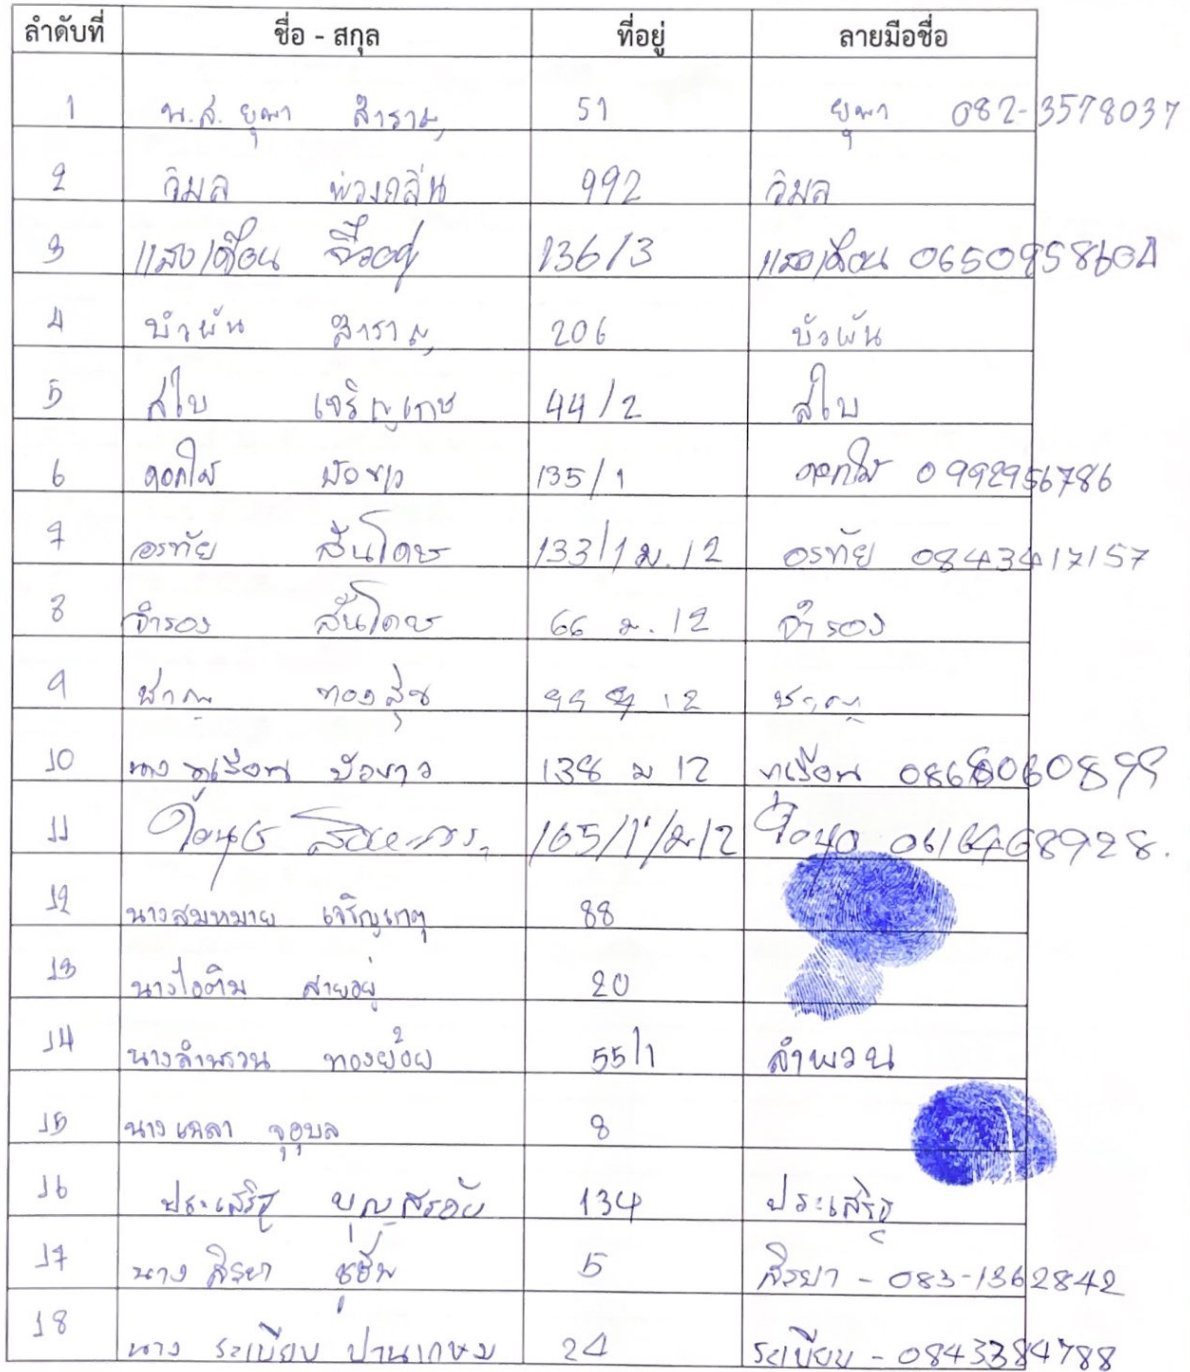 ลำดับที่ ชื่อ - สกุล ที่อยู่ ลายมือชื่อ
1 น.ส. ยุพา สำราญ 51 ยุพา 082-3578037
2 วิมล พ่วงกลิ่น 992 วิมล
3 แสงเดือน 136/3 แสงเดือน 0650958604
4 บัวผัน สำราญ 206 บัวผัน
5 สไบ เจริญเกษ 44/2 สไบ
6 ดอกไม้ บัวขาว 135/1 ดอกไม้ 0992956786
7 อรทัย สันโดษ 133/1 ม.12 อรทัย 0843417157
8 จำรอง สันโดษ 66 ม.12 จำรอง
9 ชาญ ทองสุข 99 ม 12 ชาญ
10 นาง บัวขาว 138 ม 12 0868060899
11 165/1/ม12 0616468928.
12 นางสมหมาย เจริญเกตุ 88
13 นางไอติม สายอยู่ 20
14 นางลำพวน ทองย้อย 55/1 ลำพวน
15 นาง จุอุบล 8
16 ประเสริฐ บุญสรอัย 134 ประเสริฐ
17 นาง สิรยา ชูชีพ 5 สิรยา - 083-1362842
18 นาง ระเบียบ ปานเกษม 24 ระเบียบ - 0843384788